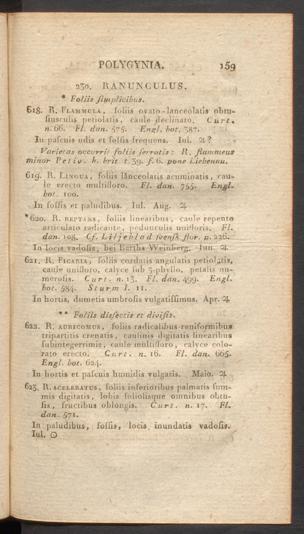 POLYGYNIA. 159
230. RANUNCULUS.
* Foliis ſimplicibus.
618. R. FLAMMULA, foliis ovato-lanceolatis obtu-
ſiusculis petiolatis, caule declinato. Curt.
n. 66. Fl. dan. 575. Engl. bot. 387.
In paſcuis udis et foſſis frequens. Iul. ♃?
Varietas occurrit foliis ſerratis: R. flammeus
minor Petiv. h. brit t. 39. f. 6. pone Liebenau.
619. R. LINGUA, foliis lanceolatis acuminatis, cau-
le erecto multifloro. Fl. dan. 755. Engl.
bot. 100.
In foſſis et paludibus. Iul. Aug. ♃
*620. R. REPTANS, foliis linearibus, caule repento
articulato radicante, pedunculis unifloris. Fl.
dan. 108. Cf. Liljeblad ſvensk flor. p. 226.
In locis vadoſis, bei Bartha Weinberg. Iun. ♃
621. R. FICARIA, foliis cordatis angulatis petiolatis,
caule unifloro, calyce ſub 3-phyllo, petalis nu-
meroſis. Curt. n. 13. Fl. dan. 499. Engl.
bot. 584. Sturm I. 11.
In hortis, dumetis umbroſis vulgatiſſimus. Apr. ♃
** Foliis diſſectis et diviſis.
622. R. AURICOMUS, foliis radicalibus reniformibus
tripartitis crenatis, caulinis digitatis linearibus
ſubintegerrimis; caule multifloro, calyce colo-
rato erecto. Curt. n. 16. Fl. dan. 665.
Engl. bot. 624.
In hortis et paſcuis humidis vulgaris. Maio. ♃
623. R. SCELERATUS, foliis inferioribus palmatis ſum-
mis digitatis, lobis foliolisque omnibus obtu-
ſis, fructibus oblongis. Curt. n. 17. Fl.
dan. 571.
In paludibus, foſſis, locis inundatis vadoſis.
Iul. ⊙